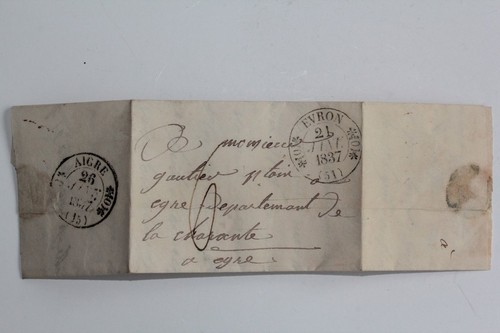 AIGRE
26
JANV
1837
(15)
EVRON
21
JANV
1837
(51)
A monsieur
gautier
egre departement de
la charante
a egre